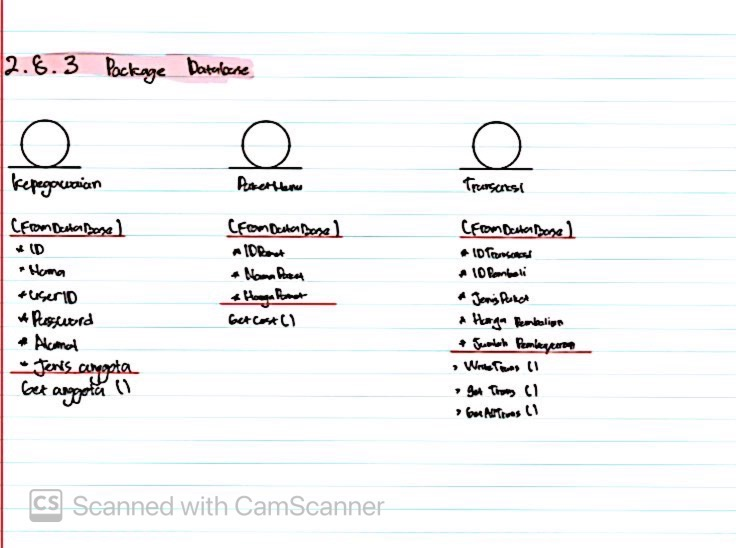 2.8.3 Package Database
Kepegawaian
(From DataBase)
* ID
* Nama
* UserID
* Password
* Alamat
* Jenis anggota
Get anggota ()
PaketMenu
(From DataBase)
* ID Paket
* Nama Paket
* Harga Paket
Get Cost ()
Transaksi
(From DataBase)
* ID Transaksi
* ID Pembeli
* Jenis Paket
* Harga Pembelian
* Jumlah Pembayaran
> Write Trans ()
> get Trans ()
> Get All Trans ()
CS Scanned with CamScanner